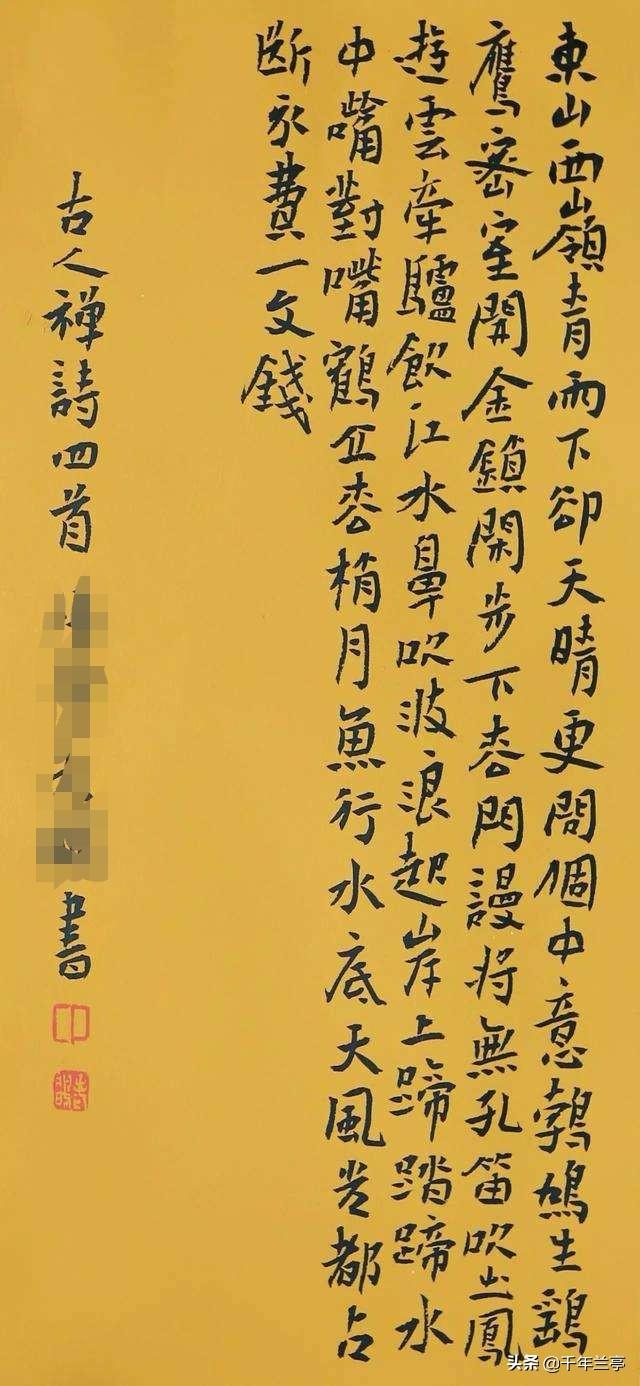 東山西嶺青雨下卻天晴更問個中意鵓鳩生鷂
鷹密室開金鎖閑步下枩門謾將無孔笛吹出鳳
遊雲牽驢飲江水鼻吹波浪起岸上蹄踏蹄水
中嘴對嘴鶴立枩梢月魚行水底天風光都占
斷不費一文錢
古人禪詩四首
書
头条 @千年兰亭